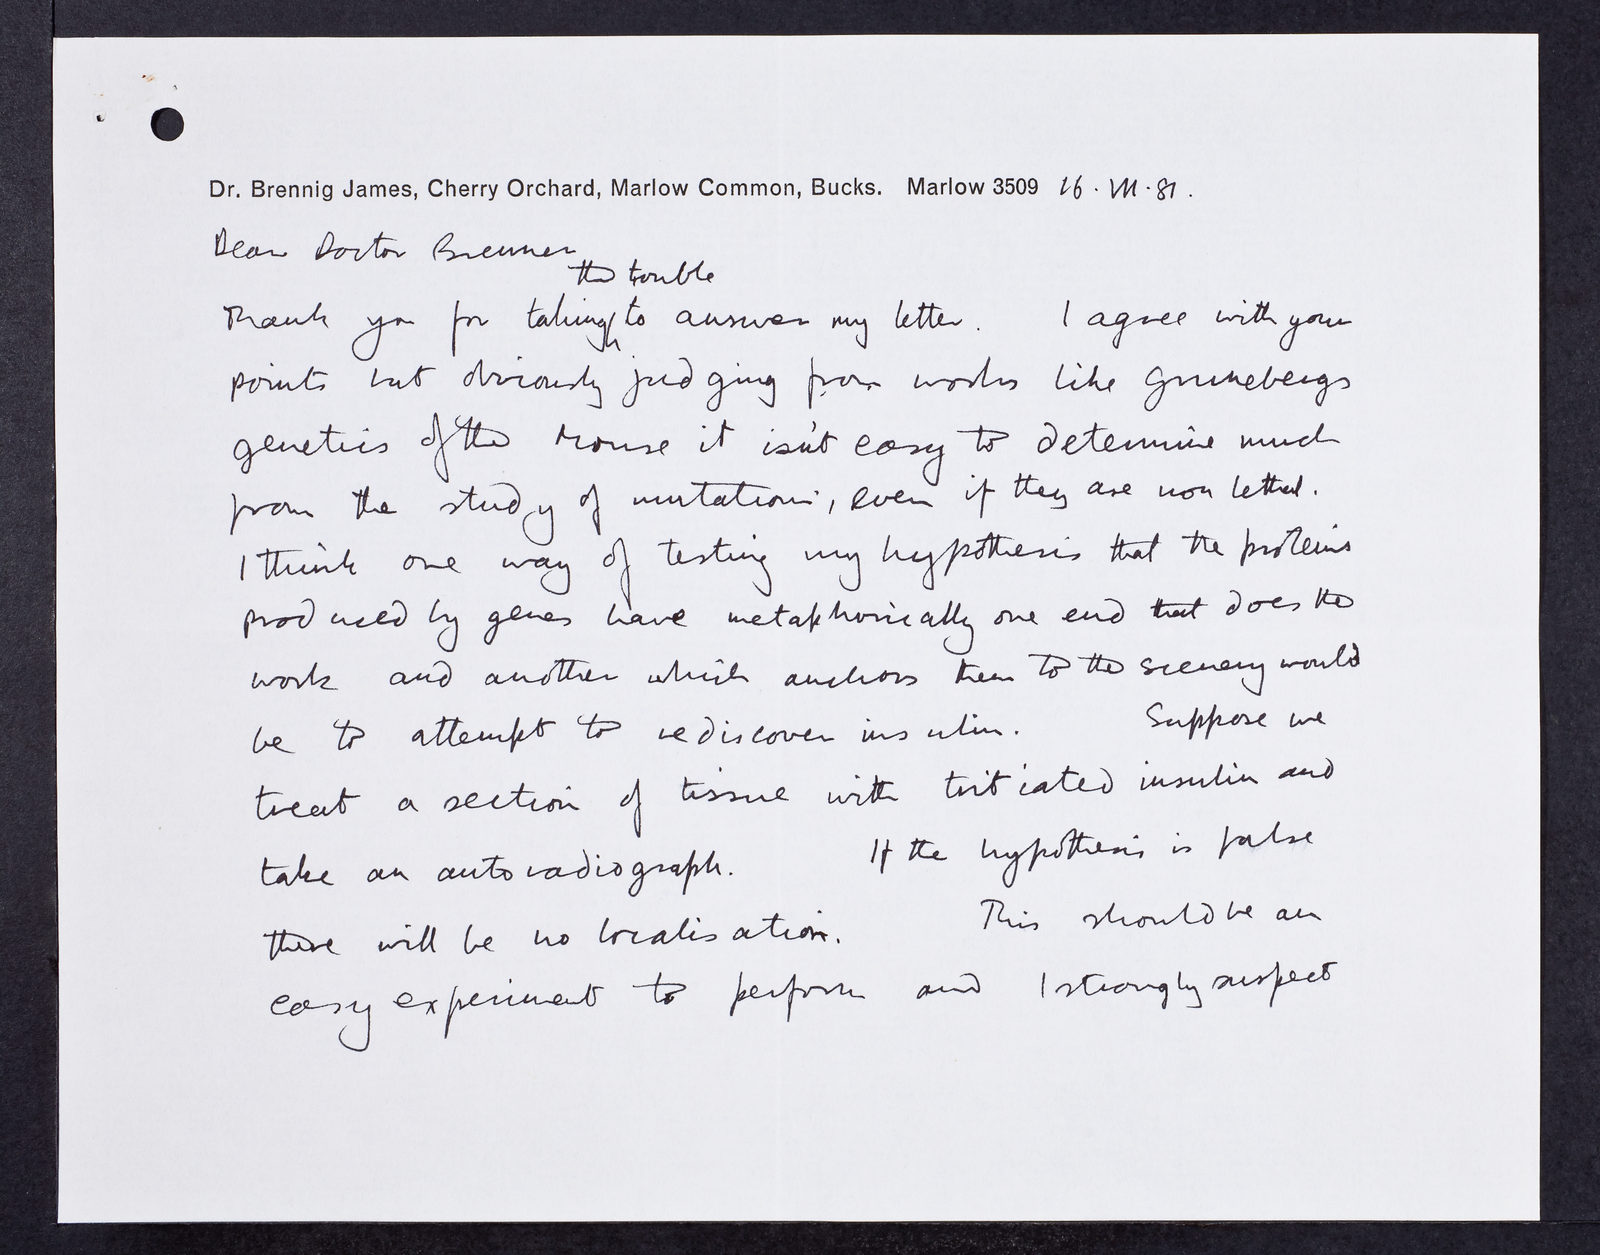 Dr. Brennig James, Cherry Orchard, Marlow Common, Bucks. Marlow 3509 16 . VII . 81 .
Dear Doctor Brenner
the trouble
Thank you for taking to answer my letter. I agree with your
points but obviously judging from works like Grunebergs
genetics of the Mouse it isn't easy to determine much
from the study of mutations, even if they are non lethal.
I think one way of testing my hypothesis that the proteins
produced by genes have metaphorically one end that does the
work and another which anchors them to the scenery would
be to attempt to rediscover insulin. Suppose we
treat a section of tissue with tritiated insulin and
take an autoradiograph. If the hypothesis is false
there will be no localisation. This should be an
easy experiment to perform and I strongly suspect